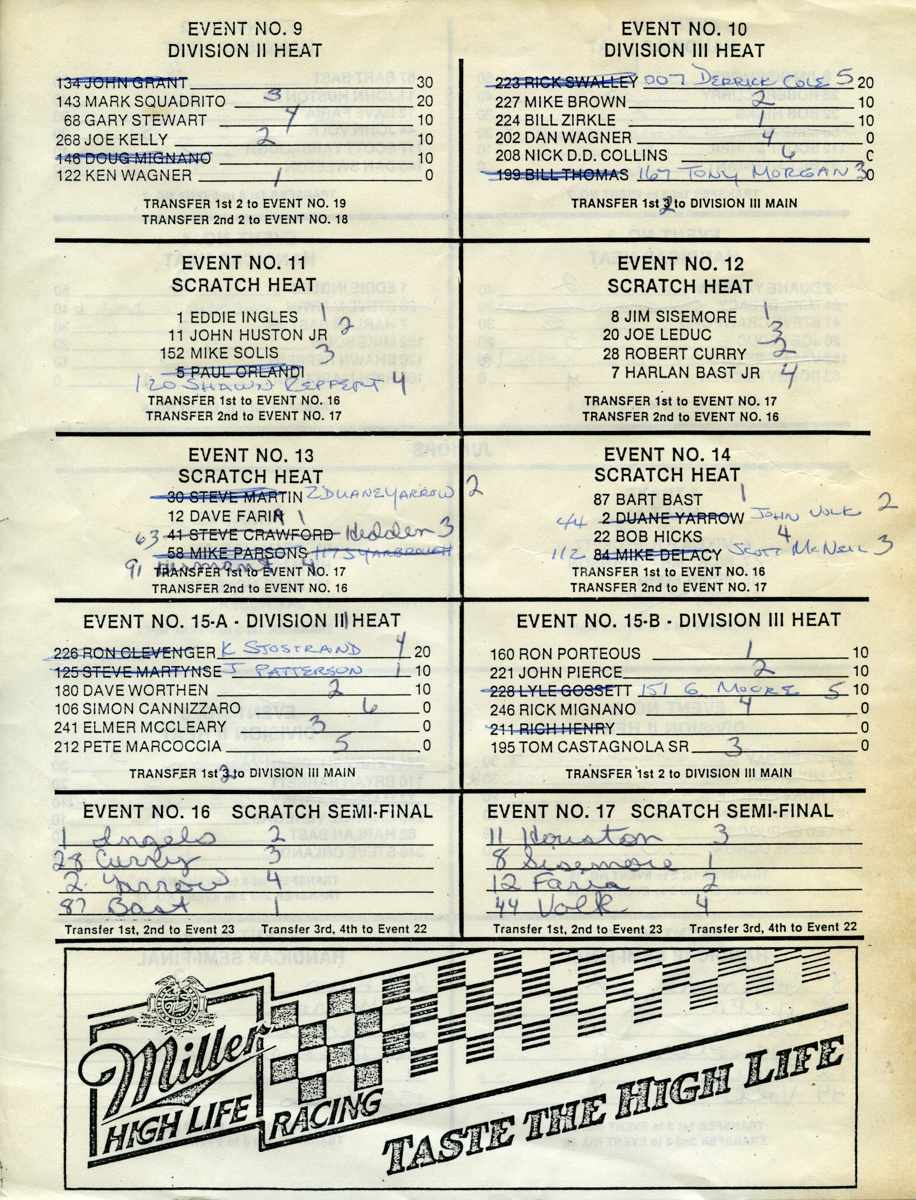 EVENT NO. 9
DIVISION II HEAT
134 JOHN GRANT 30
143 MARK SQUADRITO 3 20
68 GARY STEWART 4 10
268 JOE KELLY 2 10
146 DOUG MIGNANO 10
122 KEN WAGNER 1 0
TRANSFER 1st 2 to EVENT NO. 19
TRANSFER 2nd 2 to EVENT NO. 18
EVENT NO. 10
DIVISION III HEAT
223 RICK SWALLEY 007 DERRICK COLE 5 20
227 MIKE BROWN 2 10
224 BILL ZIRKLE 1 10
202 DAN WAGNER 4 0
208 NICK D.D. COLLINS 6 0
199 BILL THOMAS 167 TONY MORGAN 3 0
TRANSFER 1st 2 to DIVISION III MAIN
EVENT NO. 11
SCRATCH HEAT
1 EDDIE INGLES 1
11 JOHN HUSTON JR 2
152 MIKE SOLIS 3
5 PAUL ORLANDI
120 SHAWN REPPERT 4
TRANSFER 1st to EVENT NO. 16
TRANSFER 2nd to EVENT NO. 17
EVENT NO. 12
SCRATCH HEAT
8 JIM SISEMORE 1
20 JOE LEDUC 3
28 ROBERT CURRY 2
7 HARLAN BAST JR 4
TRANSFER 1st to EVENT NO. 17
TRANSFER 2nd to EVENT NO. 16
EVENT NO. 13
SCRATCH HEAT
30 STEVE MARTIN 2 DUANE YARROW 2
12 DAVE FARIA 1
63 41 STEVE CRAWFORD Hedden 3
58 MIKE PARSONS 117 S YARBROUGH
91 4
TRANSFER 1st to EVENT NO. 17
TRANSFER 2nd to EVENT NO. 16
EVENT NO. 14
SCRATCH HEAT
87 BART BAST 1
44 2 DUANE YARROW JOHN VOLK 2
22 BOB HICKS 4
112 84 MIKE DELACY SCOTT McNEIL 3
TRANSFER 1st to EVENT NO. 16
TRANSFER 2nd to EVENT NO. 17
EVENT NO. 15-A - DIVISION III HEAT
226 RON CLEVENGER K SJOSTRAND 4 20
125 STEVE MARTYNSE J PATTERSON 1 10
180 DAVE WORTHEN 2 10
106 SIMON CANNIZZARO 6 0
241 ELMER MCCLEARY 3 0
212 PETE MARCOCCIA 5 0
TRANSFER 1st 3 to DIVISION III MAIN
EVENT NO. 15-B - DIVISION III HEAT
160 RON PORTEOUS 1 10
221 JOHN PIERCE 2 10
228 LYLE GOSSETT 151 G. MOORE 5 10
246 RICK MIGNANO 4 0
211 RICH HENRY 0
195 TOM CASTAGNOLA SR 3 0
TRANSFER 1st 2 to DIVISION III MAIN
EVENT NO. 16 SCRATCH SEMI-FINAL
1 Ingels 2
28 Curry 3
2 Yarrow 4
87 Bast 1
Transfer 1st, 2nd to Event 23 Transfer 3rd, 4th to Event 22
EVENT NO. 17 SCRATCH SEMI-FINAL
11 Houston 3
8 Sisemore 1
12 Faria 2
44 Volk 4
Transfer 1st, 2nd to Event 23 Transfer 3rd, 4th to Event 22
Miller
HIGH LIFE RACING
TASTE THE HIGH LIFE